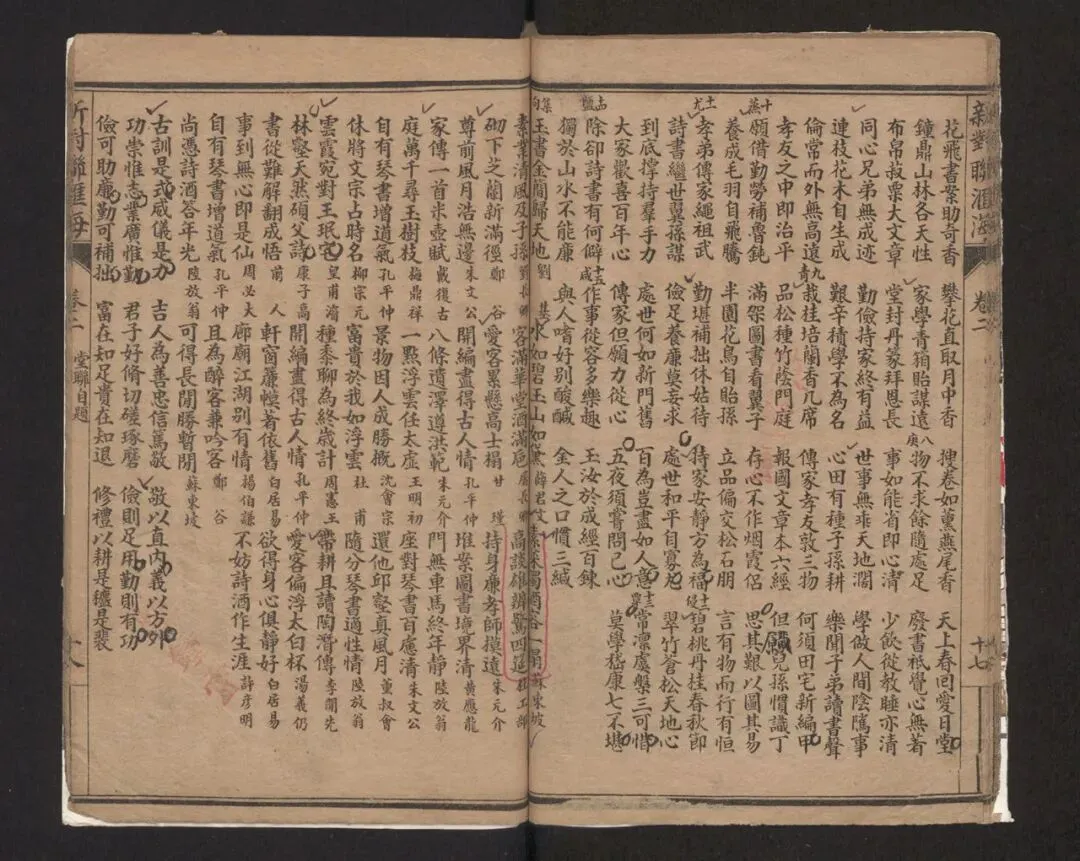 新對聯滙海 卷二 十七
花飛書案助奇香 攀花直取月中香 搜卷如薰燕尾香 天上春回愛日堂
鐘鼎山林各天性 家學青箱貽謀遠 八庚 物不求餘隨處足 廢書祇覺心無著
布帛菽粟大文章 堂封丹篆拜恩長 事如能省即心清 少飲從教睡亦清
同心兄弟無成迹 勤儉持家終有益 世事無乖天地濶 學做人間陰隲事
連枝花木自生成 艱辛積學不為名 心田有種子孫耕 樂聞子弟讀書聲
倫常而外無高遠 九青 栽桂培蘭香几席 傳家孝友敦三物 何須田宅新編甲
孝友之中即治平 品松種竹蔭門庭 報國文章本六經 但願兒孫慣識丁
十蒸 願借勤勞補魯鈍 滿架圖書看翼子 存心不作烟霞侶 思其艱以圖其易
養成毛羽自飛騰 半園花鳥自貽孫 立品偏交松石朋 言有物而行有恒
十尤 孝弟傳家繩祖武 勤堪補拙休姑待 持家安靜方為福 十二侵 碧桃丹桂春秋節
詩書繼世翼孫謀 儉足養廉莫妄求 處世和平自寡尤 翠竹蒼松天地心
到底撐持羣手力 處世何如新門舊 百為豈盡如人意 十三覃 常凜虞槃三可惜
大家歡喜百年心 傳家但願力從心 五夜須嘗問己心 莫學嵇康七不堪
除卻詩書有何僻 十五咸 作事從容多樂趣 玉汝於成經百鍊
獨於山水不能廉 與人嗜好別酸鹹 金人之口慣三緘
集句 玉書金簡歸天地 劉 水如碧玉山如黛 薛君文 蘇東坡
素業清風及子孫 劉長卿 客滿華堂酒滿巵 高談雄辨驚四筵 杜工部
砌下芝蘭新滿徑 鄭谷 愛客累懸高士榻 甘瑾 持身廉孝師摸遠 朱元介
尊前風月浩無邊 朱文公 開編盡得古人情 孔平仲 堆案圖書境界清 黃應龍
家傳一首氷壺賦 戴復古 八條遺澤遵洪範 朱元介 門無車馬終年靜 陸放翁
庭萬千尋玉樹枝 梅鼎祥 一點浮雲任太虛 王明初 座對琴書百慮清 朱文公
自有琴書增道氣 孔平仲 景物因人成勝概 沈會宗 還他邱壑真風月 董叔會
休將文字占時名 柳宗元 富貴於我如浮雲 杜甫 隨分琴書適性情 陸放翁
雲霞宛對玉珉宅 皇甫湞 種黍聊為終歲計 周憲王 帶耕且讀陶潛傳 李開先
林壑天然碩父詩 康子高 開編盡得古人情 孔平仲 愛客偏浮太白杯 湯義仍
書從難解翻成悟 前人 軒窗簾幙著依舊 白居易 欲得身心俱靜好 白居易
事到無心即是仙 周必大 廊廟江湖別有情 楊伯謙 不妨詩酒作生涯 許彦明
自有琴書增道氣 孔平仲 且為醉客兼吟客 鄭谷
尚憑詩酒答年光 陸放翁 可得長閒勝暫閒 蘇東坡
古訓是式威儀是力 吉人為善忠信篤敬 敬以直內義以方外
功崇惟志業廣惟勤 君子好脩切磋琢磨 儉則足用勤則有功
儉可助廉勤可補拙 富在知足貴在知退 修禮以耕是穮是蓘
新對聯滙海 卷二 堂聯自題 十八